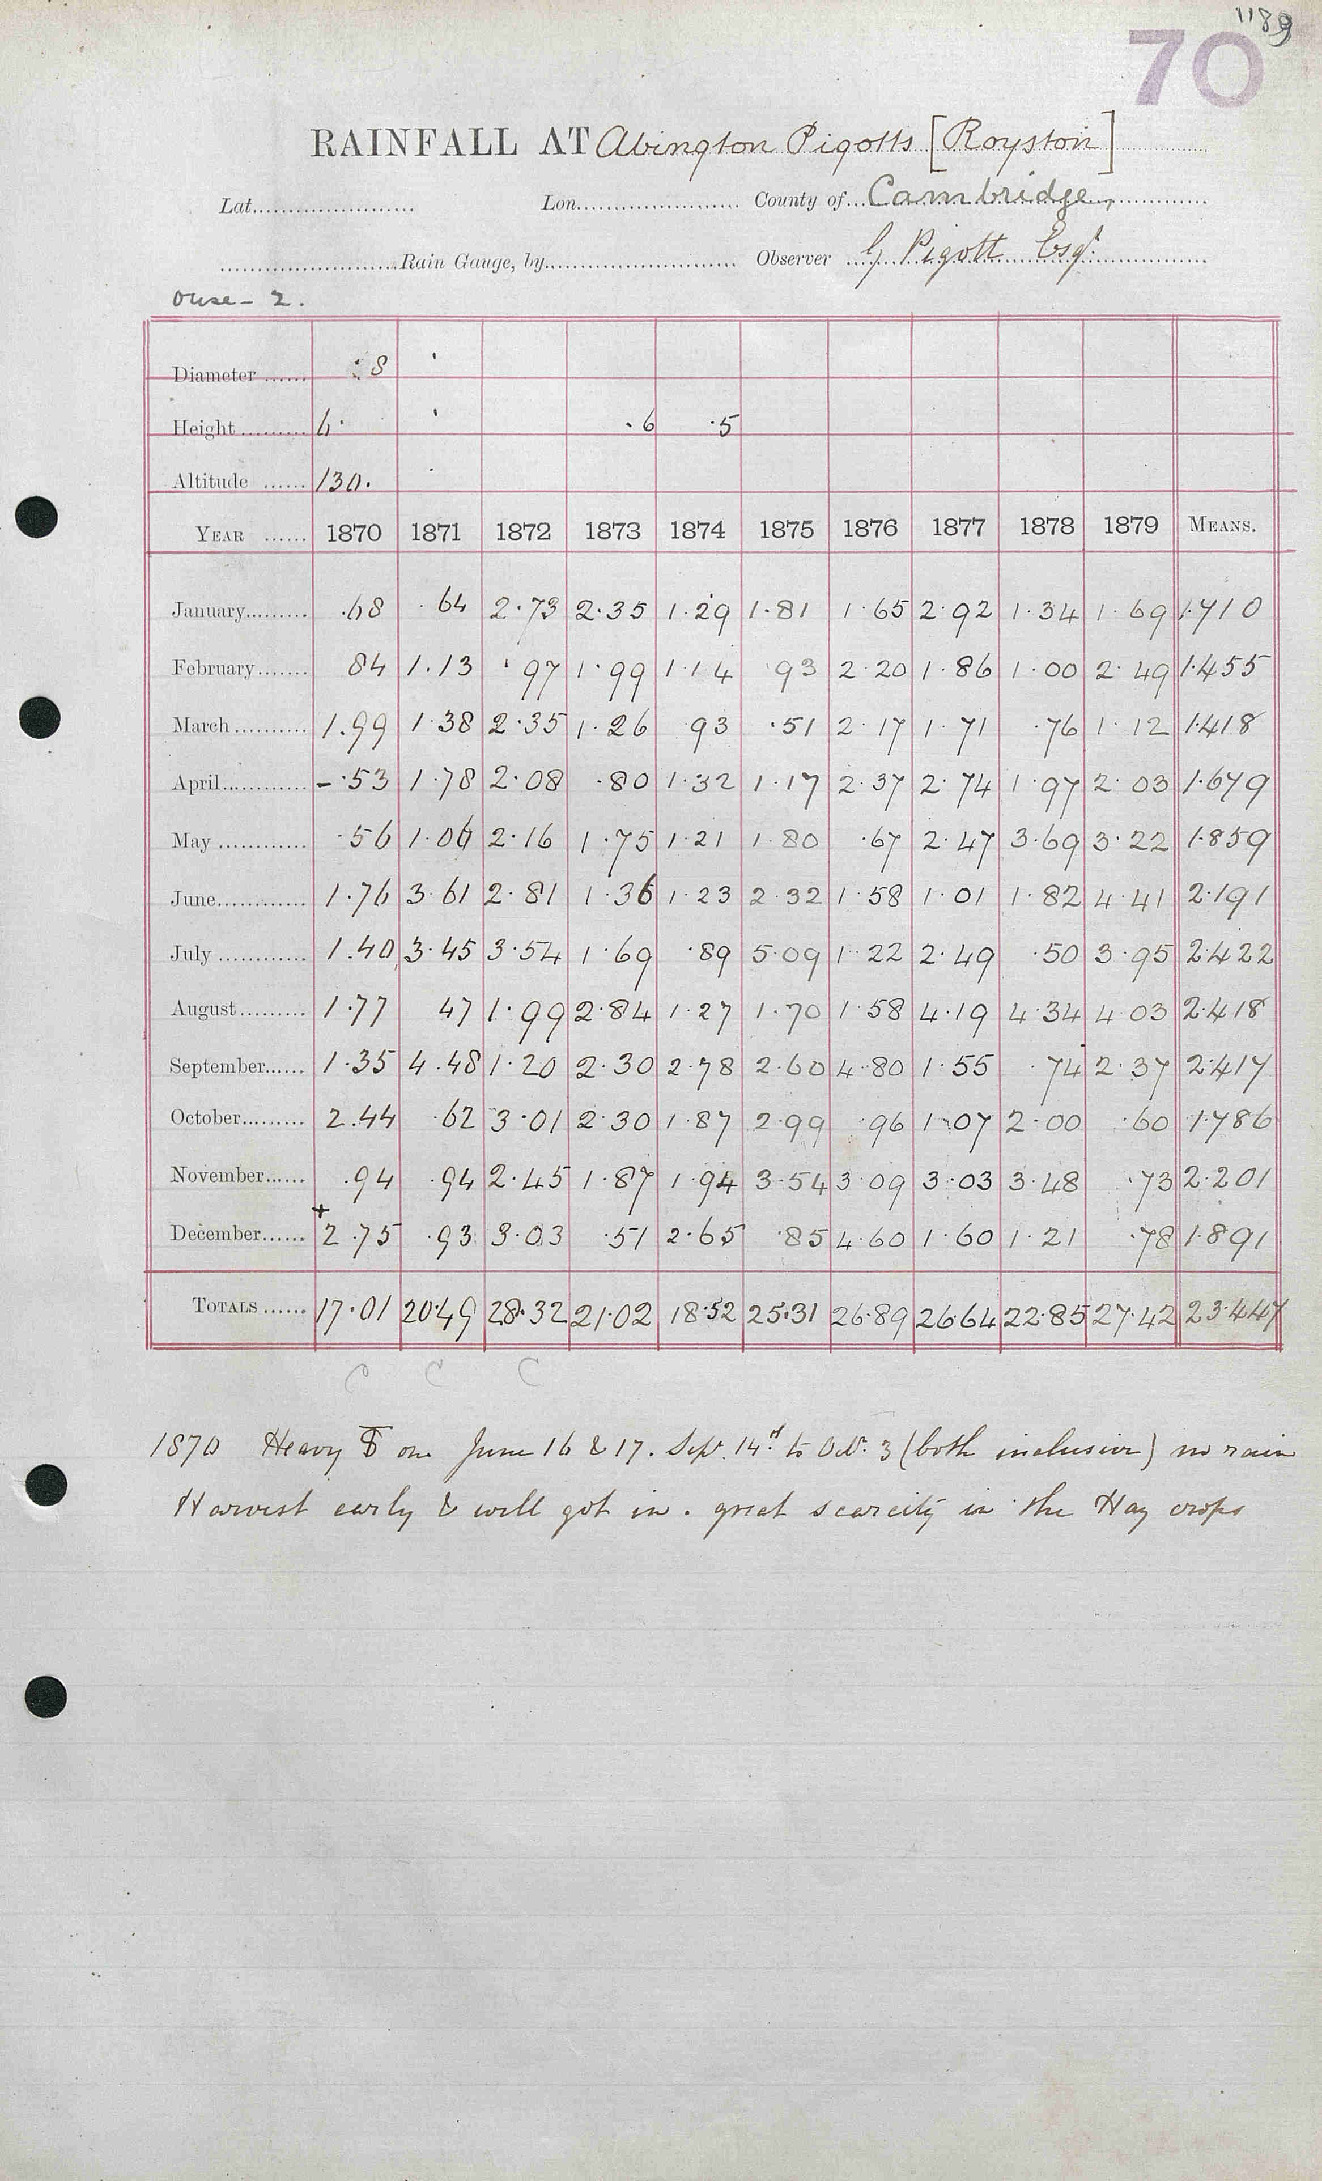 1189
70
RAINFALL AT Abington Pigotts [Royston]
Lat. Lon. County of Cambridge
Rain Gauge, by Observer G Pigott Esqr.
Ouse - 2.
Diameter 8
Height .6 .5
Altitude 130.
YEAR 1870 1871 1872 1873 1874 1875 1876 1877 1878 1879 MEANS.
January .68 .64 2.73 2.35 1.29 1.81 1.65 2.92 1.34 1.69 1.710
February 84 1.13 .97 1.99 1.14 93 2.20 1.86 1.00 2.49 1.455
March 1.99 1.38 2.35 1.26 93 .51 2.17 1.71 .76 1.12 1.418
April -.53 1.78 2.08 .80 1.32 1.17 2.37 2.74 1.97 2.03 1.679
May .56 1.06 2.16 1.75 1.21 1.80 .67 2.47 3.69 3.22 1.859
June 1.76 3.61 2.81 1.36 1.23 2.32 1.58 1.01 1.82 4.41 2.191
July 1.40 3.45 3.54 1.69 .89 5.09 1.22 2.49 .50 3.95 2.422
August 1.77 47 1.99 2.84 1.27 1.70 1.58 4.19 4.34 4.03 2.418
September 1.35 4.48 1.20 2.30 2.78 2.60 4.80 1.55 .74 2.37 2.417
October 2.44 .62 3.01 2.30 1.87 2.99 .96 1.07 2.00 .60 1.786
November .94 .94 2.45 1.87 1.94 3.54 3.09 3.03 3.48 .73 2.201
December + 2.75 .93 3.03 .51 2.65 .85 4.60 1.60 1.21 .78 1.891
TOTALS 17.01 20.49 28.32 21.02 18.52 25.31 26.89 26.64 22.85 27.42 23.447
C C C
1870 Heavy on June 16 & 17. Sept. 14th to Oct. 3 (both inclusive) no rain
Harvest early & well got in. great scarcity in the Hay crops